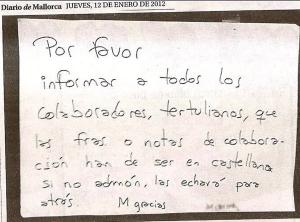 Diario de Mallorca JUEVES, 12 DE ENERO DE 2012
Por favor
informar a todos los
colaboradores, tertulianos, que
las fras o notas de colabora-
ción han de ser en castellano
si no admón, las echará para
atrás. M gracias